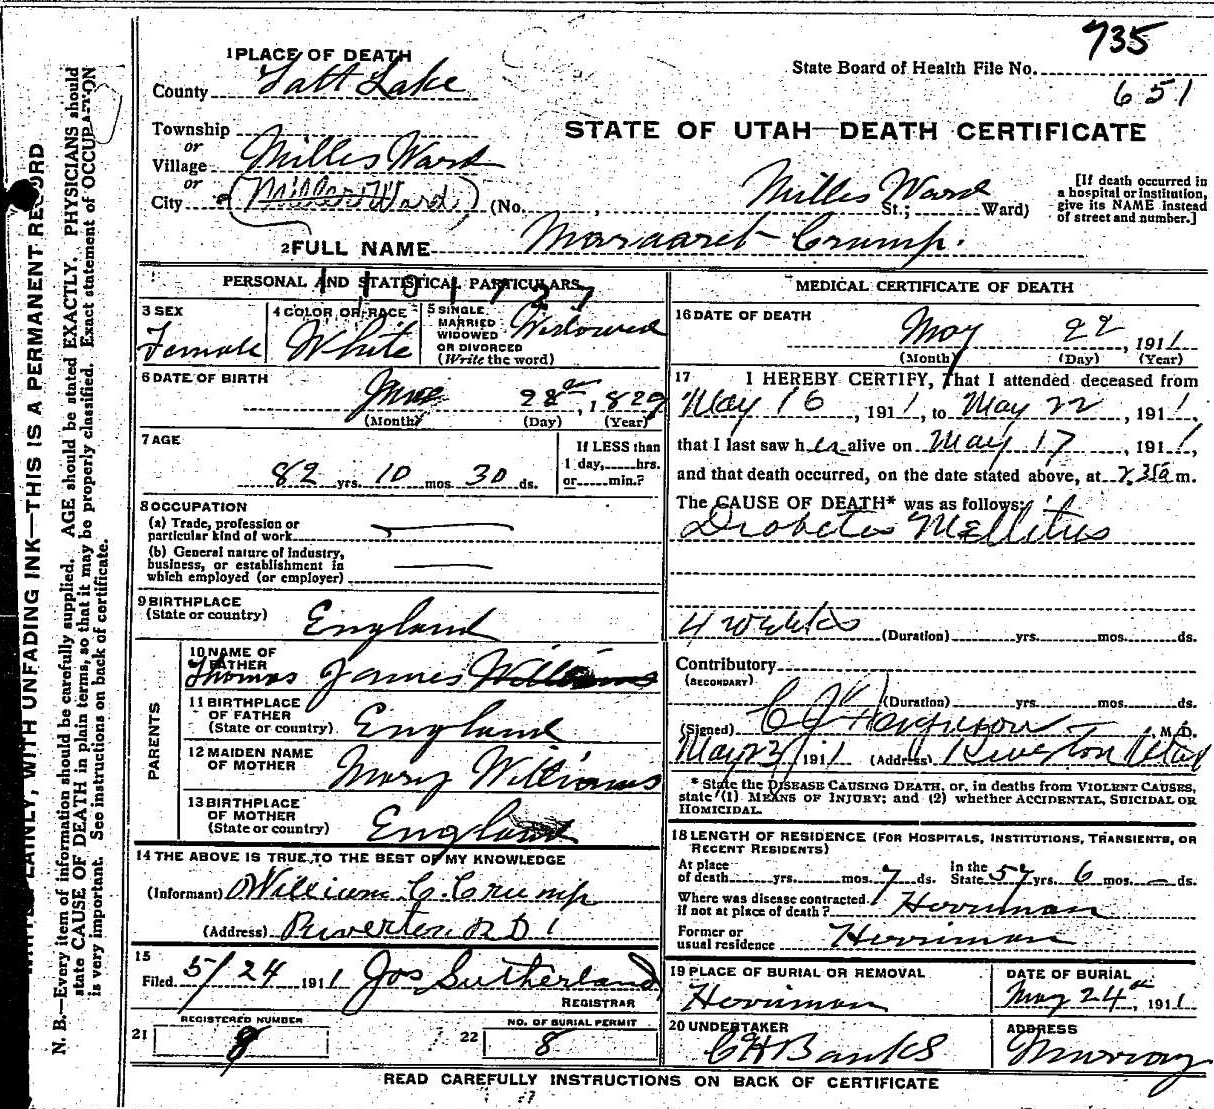 735
State Board of Health File No.
651
1 PLACE OF DEATH
County Salt Lake
STATE OF UTAH—DEATH CERTIFICATE
Township
or
Village Milles Ward
or
City (Miller Ward) (No. , Milles Ward St.; Ward)
[If death occurred in
a hospital or institution,
give its NAME instead
of street and number.]
2 FULL NAME Margaret Crump.
PERSONAL AND STATISTICAL PARTICULARS
3 SEX
Female
4 COLOR OR RACE
White
5 SINGLE
MARRIED
WIDOWED
OR DIVORCED
(Write the word)
Widowed
6 DATE OF BIRTH
June 28th, 1829
(Month) (Day) (Year)
7 AGE
82 yrs. 10 mos. 30 ds.
If LESS than
1 day, hrs.
or min.?
8 OCCUPATION
(a) Trade, profession or
particular kind of work
(b) General nature of industry,
business, or establishment in
which employed (or employer)
9 BIRTHPLACE
(State or country) England
PARENTS
10 NAME OF
FATHER
Thomas James Williams
11 BIRTHPLACE
OF FATHER
(State or country) England
12 MAIDEN NAME
OF MOTHER Mary Williams
13 BIRTHPLACE
OF MOTHER
(State or country) England
14 THE ABOVE IS TRUE TO THE BEST OF MY KNOWLEDGE
(Informant) William C. Crump
(Address) Riverton R D 1
15
Filed 5/24 1911 Jos Sutherland
REGISTRAR
21 REGISTERED NUMBER
8
22 NO. OF BURIAL PERMIT
8
MEDICAL CERTIFICATE OF DEATH
16 DATE OF DEATH
May 22, 1911
(Month) (Day) (Year)
17 I HEREBY CERTIFY, That I attended deceased from
May 16, 1911, to May 22, 1911,
that I last saw her alive on May 17, 1911,
and that death occurred, on the date stated above, at m.
The CAUSE OF DEATH* was as follows:
Diabetes Mellitus
4 weeks (Duration) yrs. mos. ds.
Contributory
(SECONDARY)
(Duration) yrs. mos. ds.
(Signed) , M. D.
May 23, 1911 (Address) Riverton Utah
* State the DISEASE CAUSING DEATH, or, in deaths from VIOLENT CAUSES,
state (1) MEANS OF INJURY; and (2) whether ACCIDENTAL, SUICIDAL OR
HOMICIDAL.
18 LENGTH OF RESIDENCE (FOR HOSPITALS, INSTITUTIONS, TRANSIENTS, OR
RECENT RESIDENTS)
At place
of death yrs. mos. 7 ds.
In the
State 57 yrs. 6 mos. – ds.
Where was disease contracted
if not at place of death? Herriman
Former or
usual residence Herriman
19 PLACE OF BURIAL OR REMOVAL
Herriman
DATE OF BURIAL
May 24th, 1911
20 UNDERTAKER
C H Banks
ADDRESS
Murray
READ CAREFULLY INSTRUCTIONS ON BACK OF CERTIFICATE
PLAINLY, WITH UNFADING INK—THIS IS A PERMANENT RECORD
N. B.—Every item of information should be carefully supplied. AGE should be stated EXACTLY. PHYSICIANS should
state CAUSE OF DEATH in plain terms, so that it may be properly classified. Exact statement of OCCUPATION
is very important. See instructions on back of certificate.